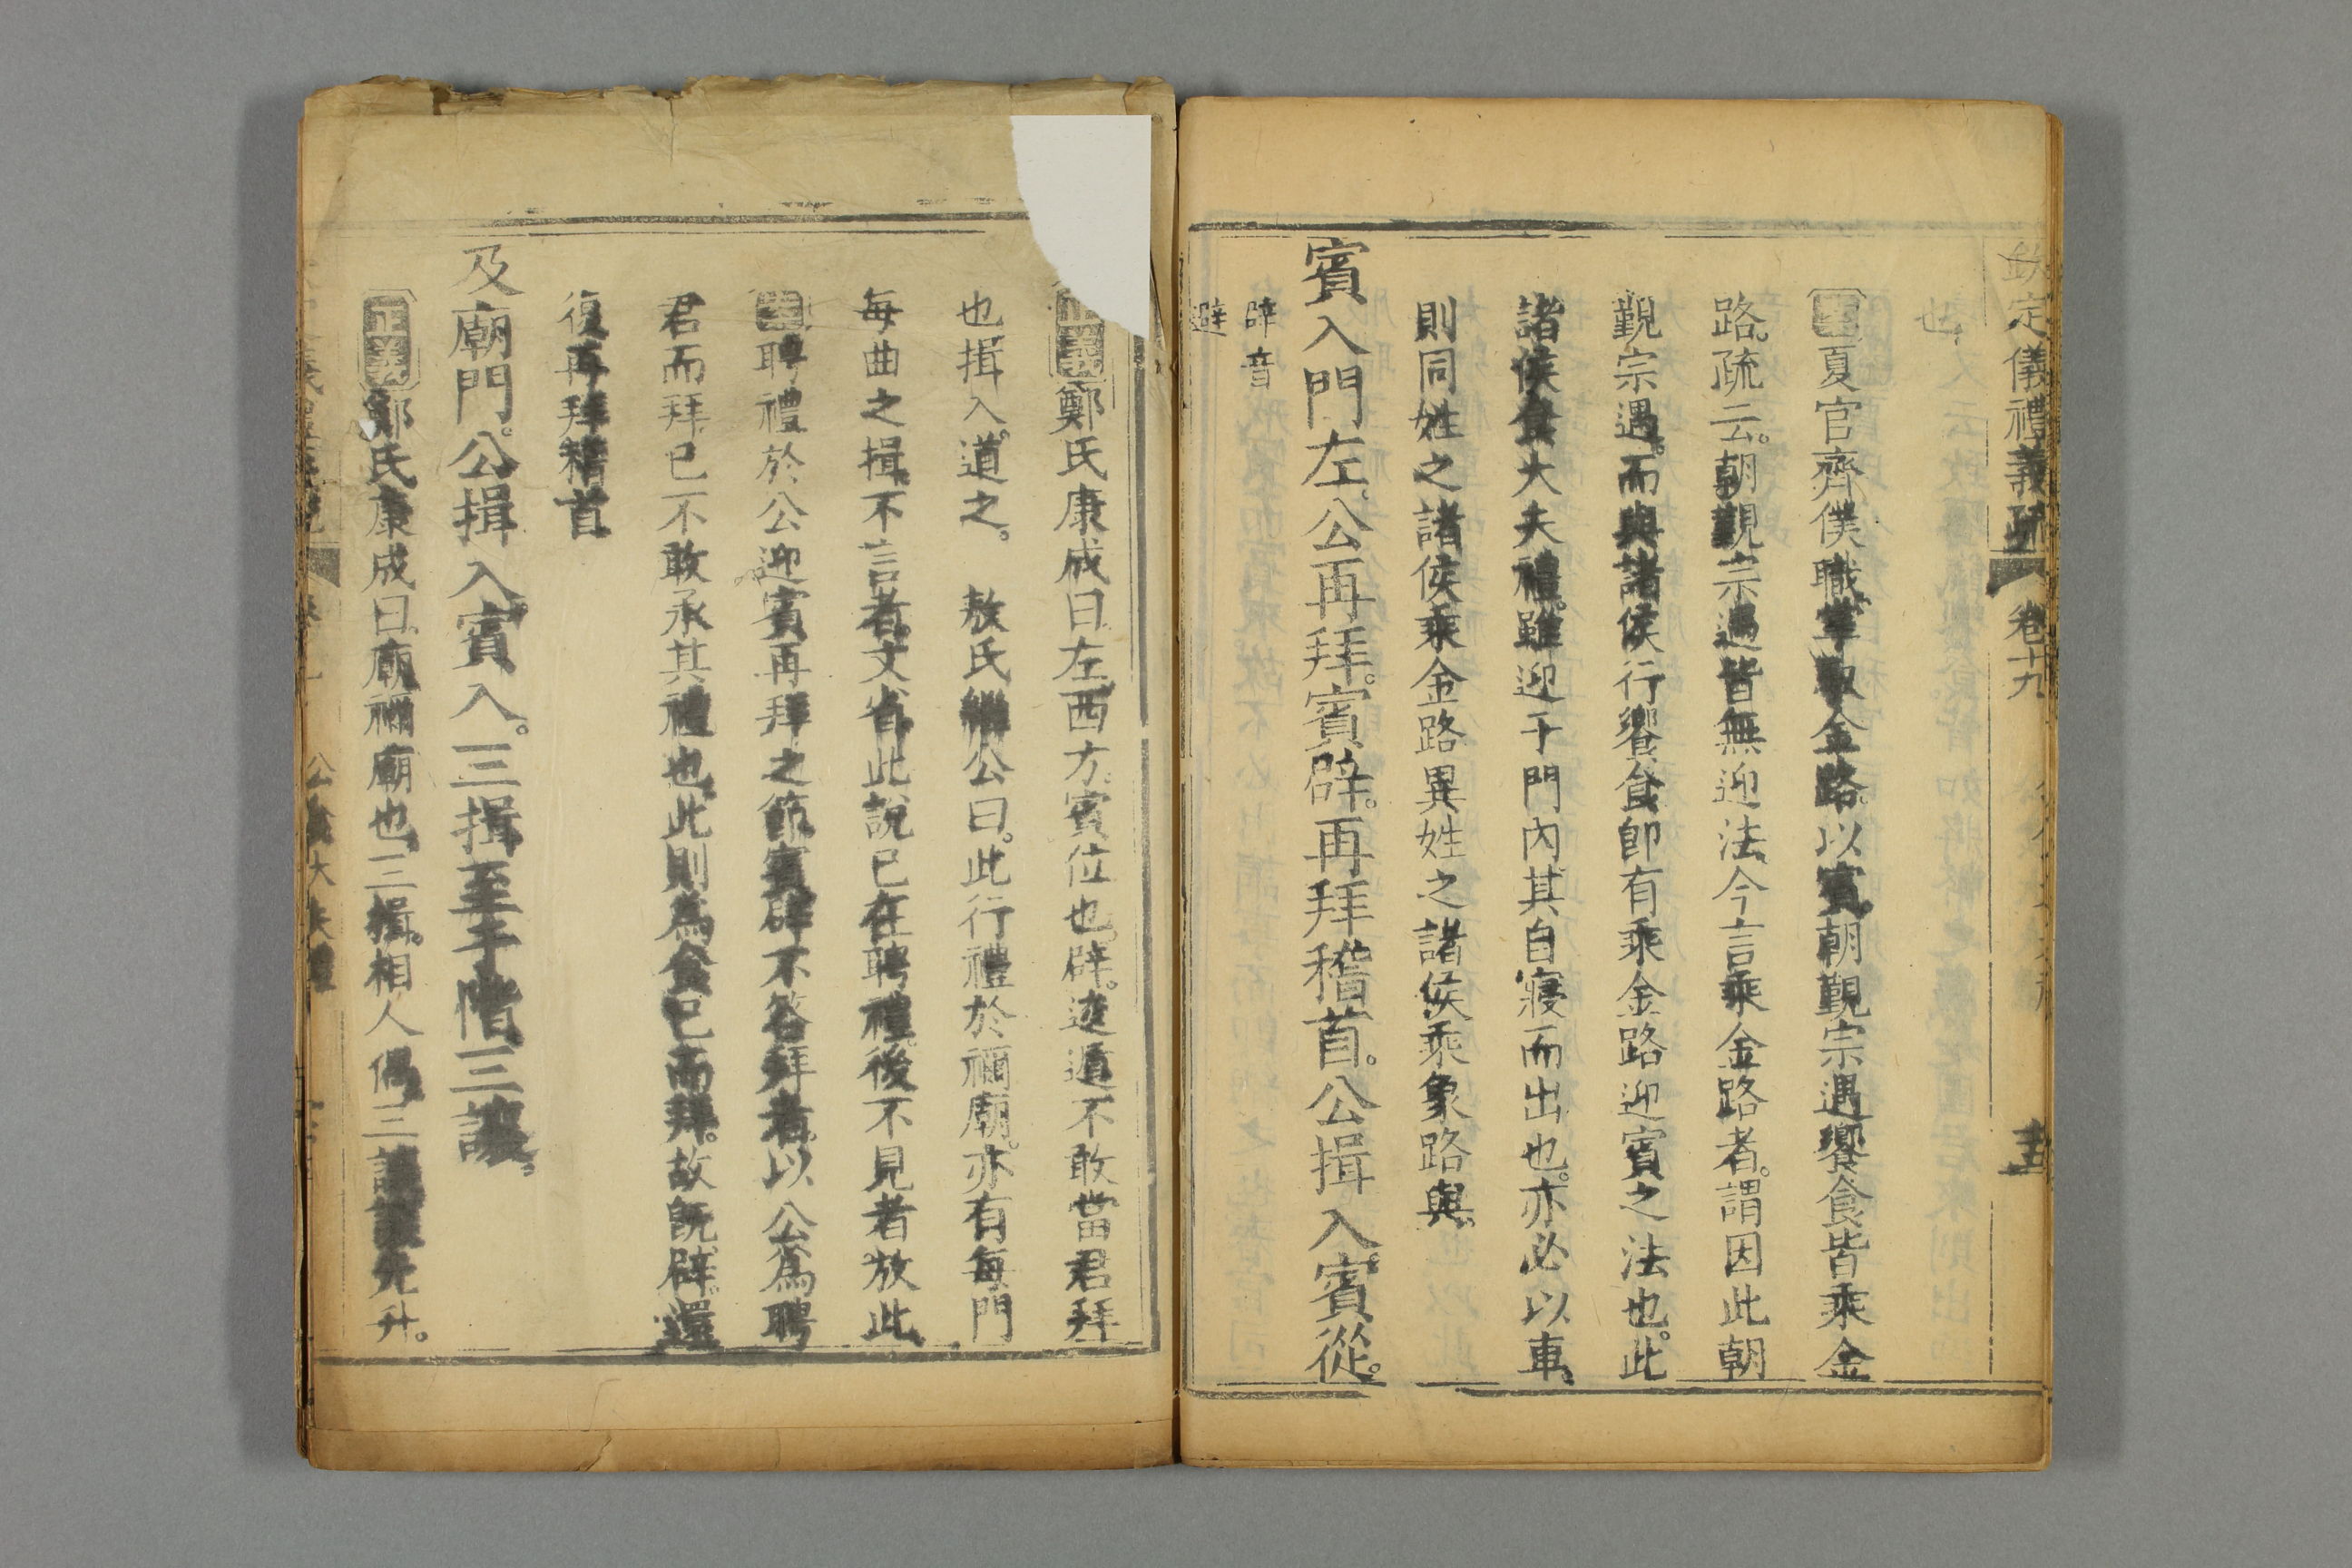 欽定儀禮義疏 卷十九
也
案夏官齊僕職掌馭金路以賓朝覲宗遇饗食皆乘金
路疏云朝覲宗遇皆無迎法今言乘金路者謂因此朝
覲宗遇而與諸侯行饗食即有乘金路迎賓之法也此
諸侯食大夫禮雖迎于門內其自寢而出也亦必以車
則同姓之諸侯乘金路異姓之諸侯乘象路與
賓入門左公再拜賓辟再拜稽首公揖入賓從
辟音
避
正義鄭氏康成曰左西方賓位也辟逡遁不敢當君拜
也揖入道之 敖氏繼公曰此行禮於禰廟亦有每門
每曲之揖不言者文省此說已在聘禮後不見者放此
案聘禮於公迎賓再拜之節賓辟不答拜者以公為聘
君而拜已不敢承其禮也此則為食已而拜故既辟還
復再拜稽首
及廟門公揖入賓入三揖至于階三讓
正義鄭氏康成曰廟禰廟也三揖相人偶三讓讓先升
公食大夫禮